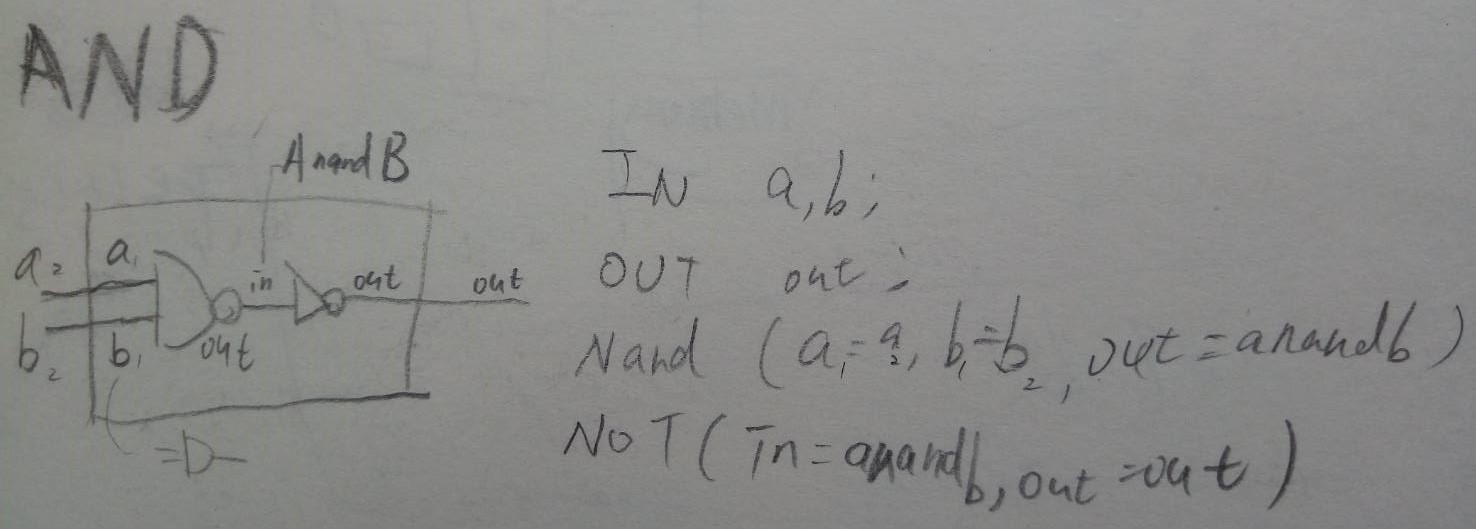 AND
A nand B
a₂ a₁ in out out
b₂ b₁ out
IN a, b;
OUT out;
Nand (a₁=a₂, b₁=b₂, out=anandb)
NOT (in=anandb, out=out)